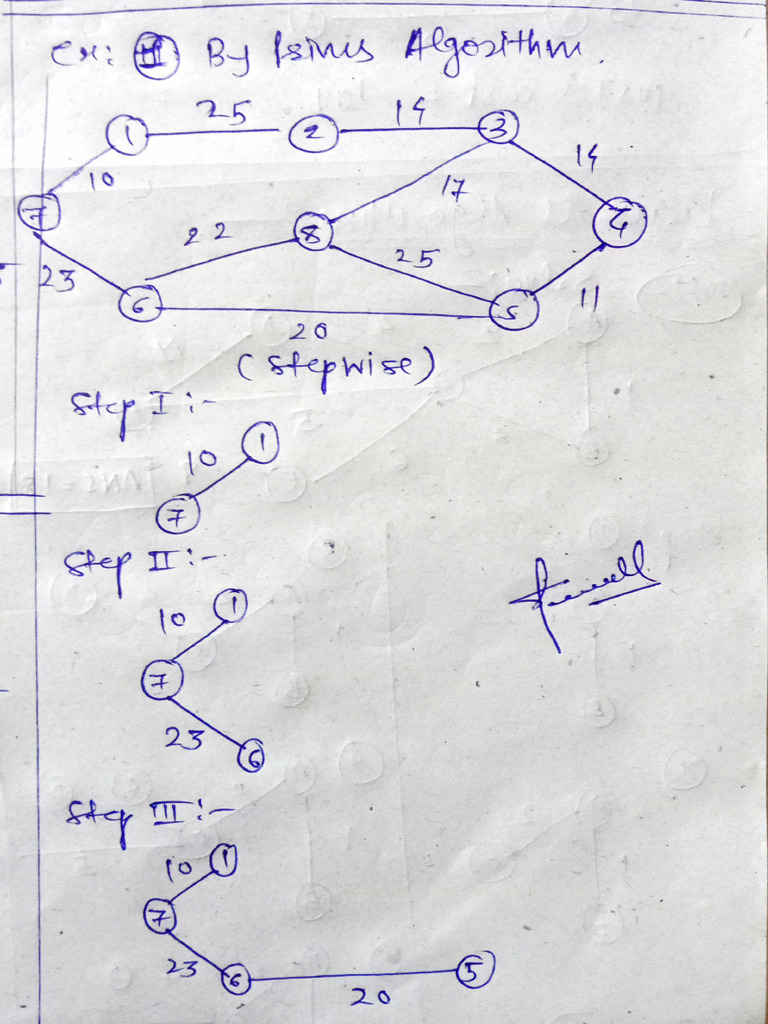 Ex: II By Prims Algorithm.
25 14
1 2 3
10 17 14
7 22 8 4
23 25
6 5 11
20
(Stepwise)
Step I :-
1
10
7
Step II :-
10 1
7
23
6
Step III :-
10 1
7
23 6 5
20